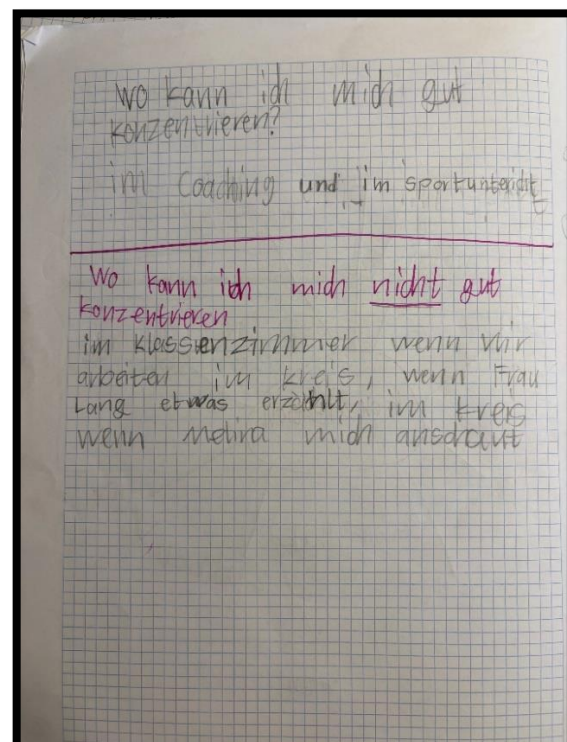 Wo kann ich mich gut
konzentrieren?
im Coaching und im sportunterricht
Wo kann ich mich nicht gut
konzentrieren
im klassenzimmer wenn wir
arbeiten im kreis, wenn Frau
Lang etwas erzählt, im kreis
wenn Melina mich anschaut